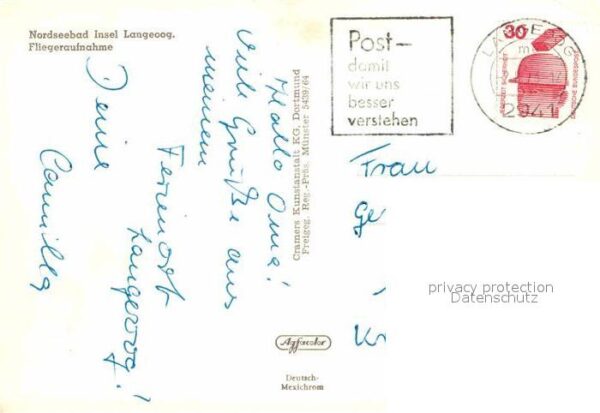 Nordseebad Insel Langeoog.
Fliegeraufnahme
Hallo Oma!
Viele Grüße aus
meinem
Ferienort
Langeoog!
Deine
Camilla
Cramers Kunstanstalt KG, Dortmund
Freigeg. Reg.-Präs. Münster 5439/64
Agfacolor
Deutsch-
Mexichrom
Post-
damit
wir uns
besser
verstehen
LANGEOOG
2941
30
DEUTSCHE BUNDESPOST
Frau
Ge
Kr
privacy protection
Datenschutz